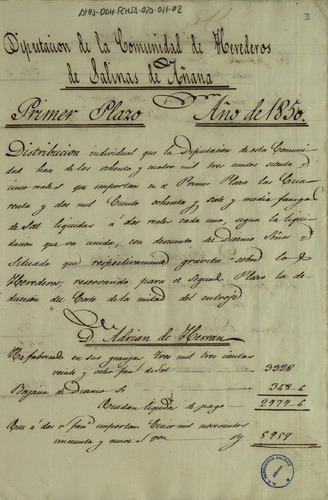 AHA-DOH-FCHSA-020-011-02
3
Diputacion de la Comunidad de Herederos
de Salinas de Añana
Primer Plazo Año de 1850
Distribucion individual que la Diputacion de esta Comuni
dad hace de los ochenta y cuatro mil tres cientos setenta y
cinco reales que importan en el Primer Plazo las Cua
renta y dos mil Ciento ochenta y siete y media fanegas
de Sal liquidas a dos reales cada una, segun la liqui
dacion que va unida, con descuento de Diezmo
que respectivamente gravita sobre los
Herederos; reservando para el segundo Plazo la de
duccion del Costo de la mitad del entroje
D. Adrian de Herran
Ha fabricado en sus granjas tres mil tres cientas
veinte y ocho fan.s de Sal 3328
Bajan de Diezmo 348-6
Quedan liquidas de pago 2979-6
Que a dos r.s fan.a importan Cinco mil novecientos
cincuenta y nueve r.s von 5959